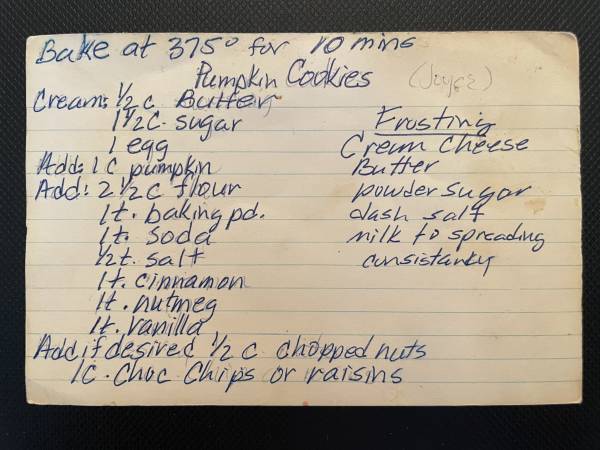 Bake at 375° for 10 mins
Pumpkin Cookies (Joyce)
Cream: 1/2 c Butter
1 1/2 c. sugar
1 egg
Add: 1 c pumpkin
Add: 2 1/2 c flour
1t. baking pd.
1t. soda
1/2 t. salt
1t. cinnamon
1t. nutmeg
1t. vanilla
Add if desired 1/2 c chopped nuts
1c. Choc Chips or raisins
Frosting
Cream Cheese
Butter
powder sugar
dash salt
milk to spreading
consistanky